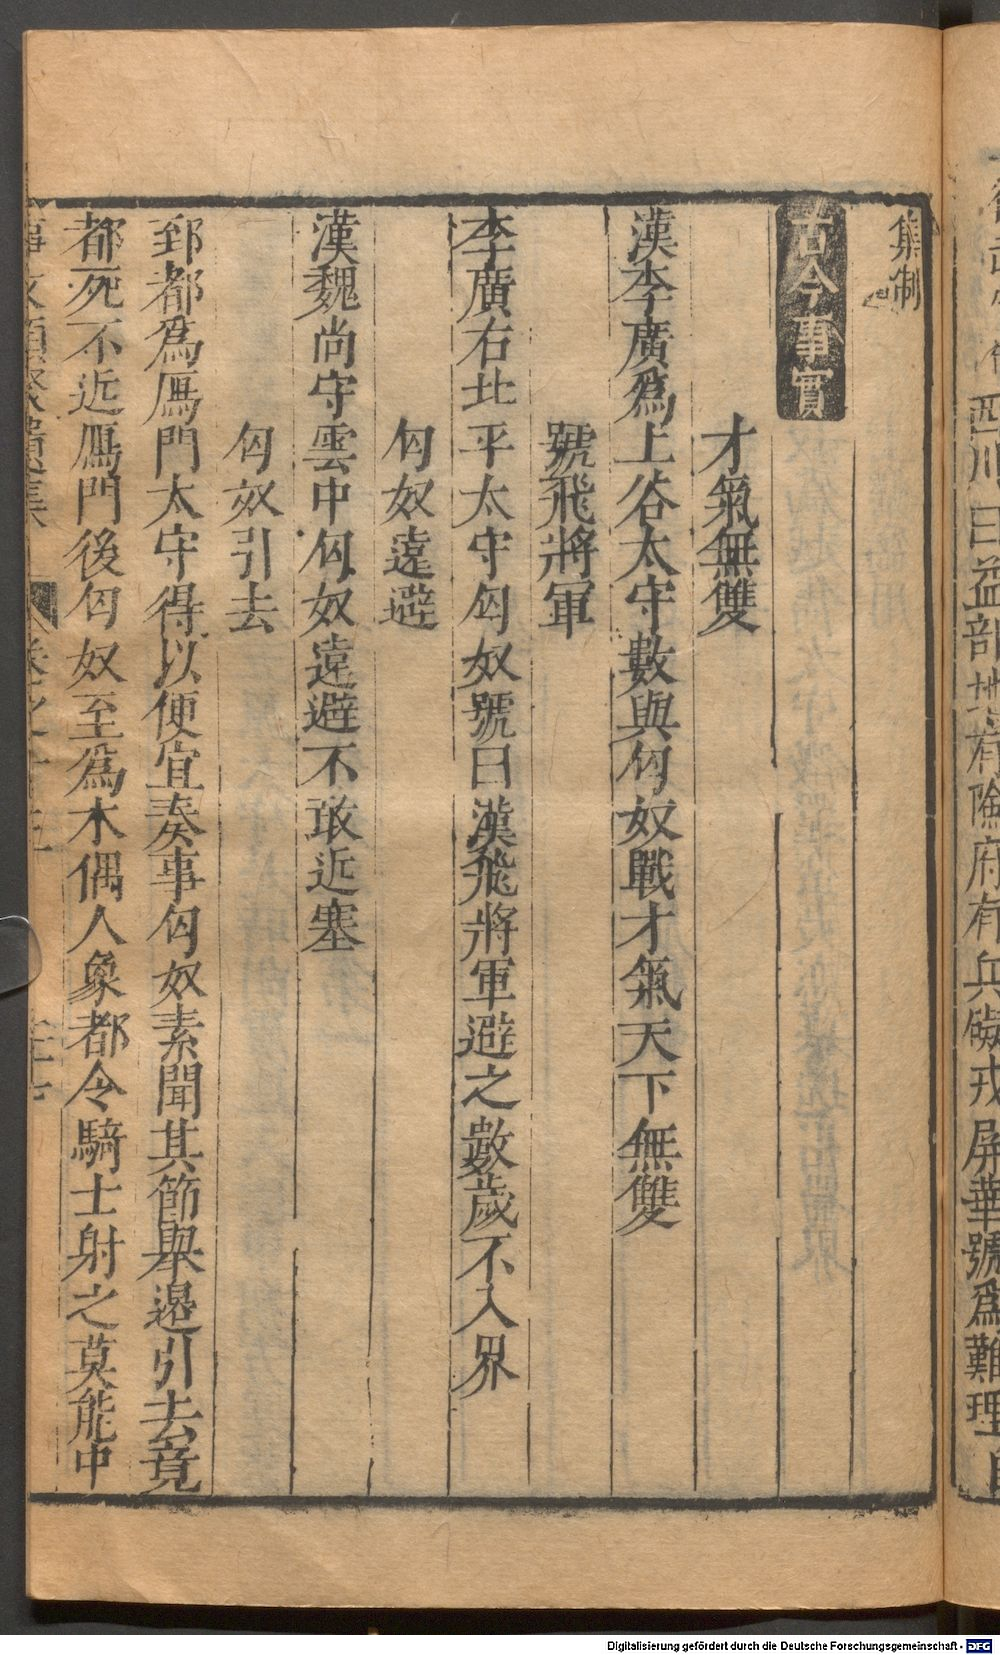 西川曰益部地有險府有兵礙戎屏華號爲難理
集制
古今事實
才氣無雙
漢李廣爲上谷太守數與匈奴戰才氣天下無雙
號飛將軍
李廣右北平太守匈奴號曰漢飛將軍避之數歲不入界
匈奴遠避
漢魏尚守雲中匈奴遠避不敢近塞
匈奴引去
郅都爲鴈門太守得以便宜奏事匈奴素聞其節舉邊引去竟
都死不近鴈門後匈奴至爲木偶人象都令騎士射之莫能中
Digitalisierung gefördert durch die Deutsche Forschungsgemeinschaft - DFG